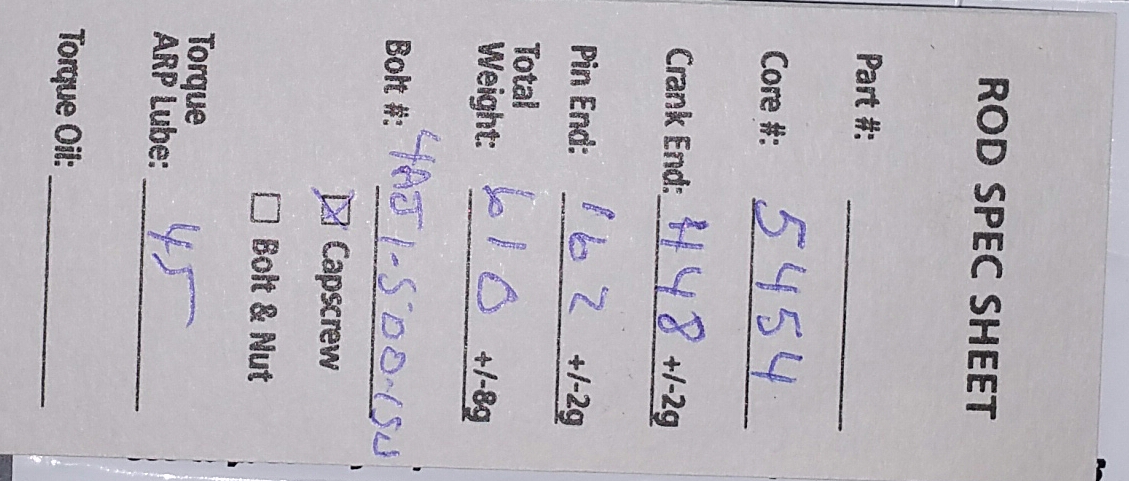 ROD SPEC SHEET
Part #:
Core #: 5454
Crank End: 448 +/-2g
Pin End: 162 +/-2g
Total
Weight: 610 +/-8g
Bolt #:
☒ Capscrew
☐ Bolt & Nut
Torque
ARP Lube: 45
Torque Oil: